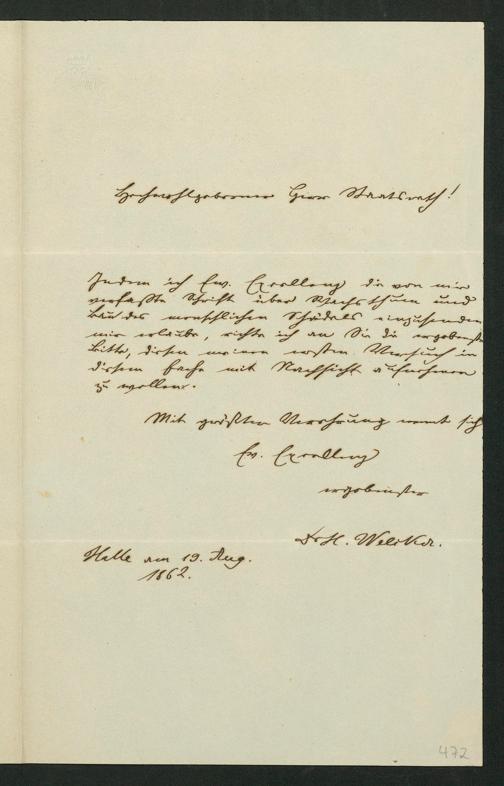 Hochwohlgeborener Herr Staatsrath!
Indem ich Ew. Excellenz die von mir
verfaßte Schrift über Wachsthum und
Bau des menschlichen Schädels einzusenden
mir erlaube, richte ich an Sie die ergebenste
Bitte, diesen meinen ersten Versuch in
diesem Fache mit Nachsicht aufnehmen
zu wollen.
Mit größter Verehrung nennt sich
Ew. Excellenz
ergebenster
Dr H. Welcker.
Halle am 19. Aug.
1862.
472